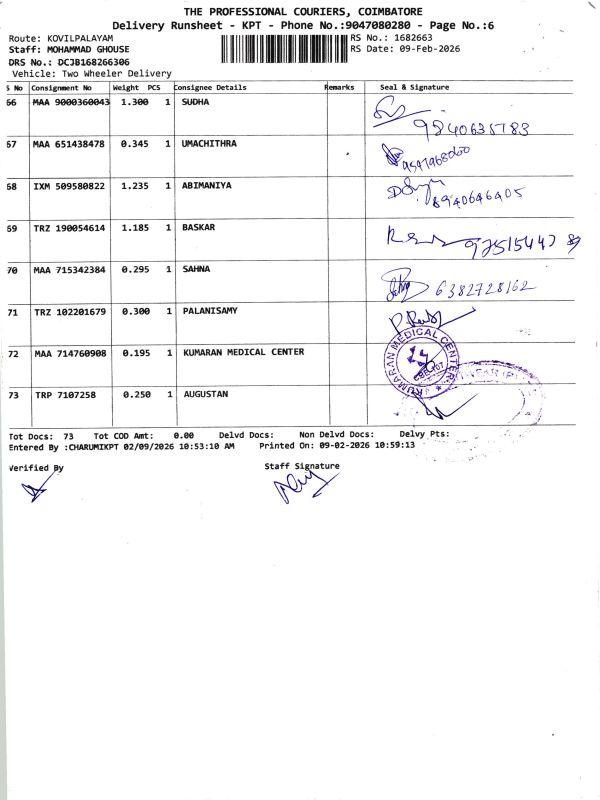 THE PROFESSIONAL COURIERS, COIMBATORE
Delivery Runsheet - KPT - Phone No.:9047080280 - Page No.:6
Route: KOVILPALAYAM
RS No.: 1682663
Staff: MOHAMMAD GHOUSE
RS Date: 09-Feb-2026
DRS No.: DCJB168266306
Vehicle: Two Wheeler Delivery
S No Consignment No Weight PCS Consignee Details Remarks Seal & Signature
66 MAA 9000360043 1.300 1 SUDHA
67 MAA 651438478 0.345 1 UMACHITHRA
68 IXM 509580822 1.235 1 ABIMANIYA 8940646405
69 TRZ 190054614 1.185 1 BASKAR
70 MAA 715342384 0.295 1 SAHNA 6382728162
71 TRZ 102201679 0.300 1 PALANISAMY
72 MAA 714760908 0.195 1 KUMARAN MEDICAL CENTER KUMARAN MEDICAL CENTER
73 TRP 7107258 0.250 1 AUGUSTAN
Tot Docs: 73 Tot COD Amt: 0.00 Delvd Docs: Non Delvd Docs: Delvy Pts:
Entered By :CHARUMIKPT 02/09/2026 10:53:10 AM Printed On: 09-02-2026 10:59:13
Verified By Staff Signature